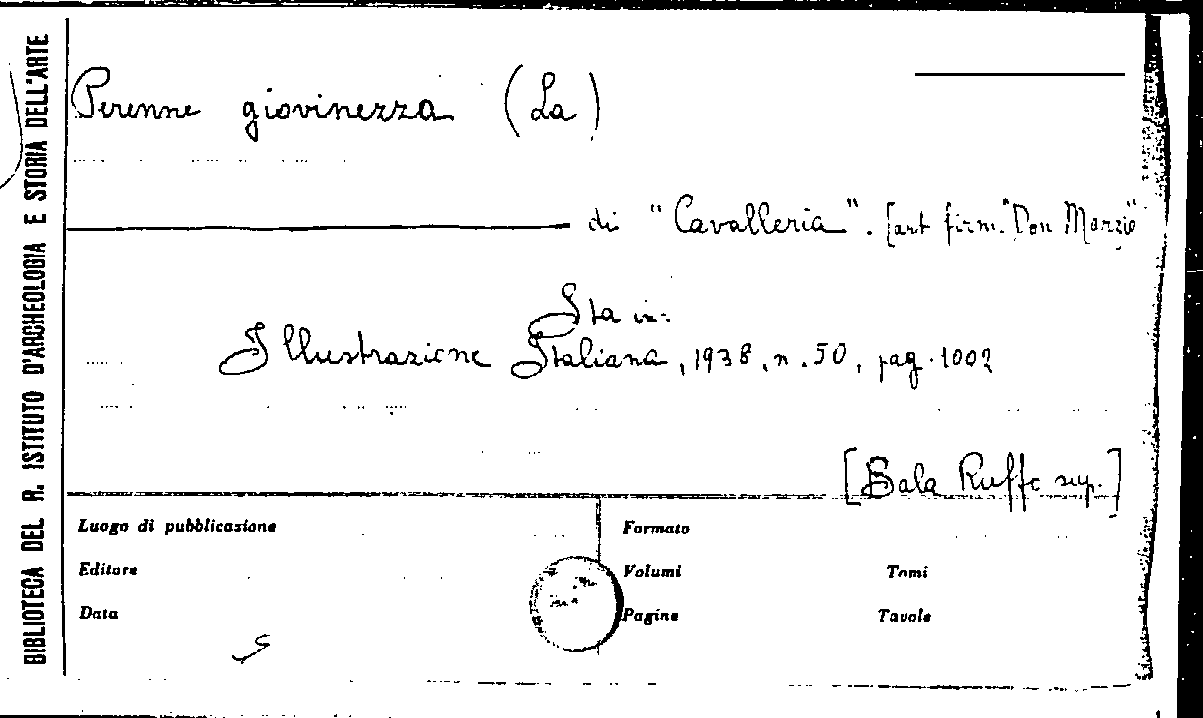 BIBLIOTECA DEL R. ISTITUTO D'ARCHEOLOGIA E STORIA DELL'ARTE
Perenne giovinezza (La)
di "Cavalleria". [art firm. "Don Marzio"
Sta in:
Illustrazione Italiana, 1938, n. 50, pag. 1002
[Sala Ruffo sup.]
Luogo di pubblicazione
Formato
Editore
Volumi
Tomi
Data
Pagine
Tavole